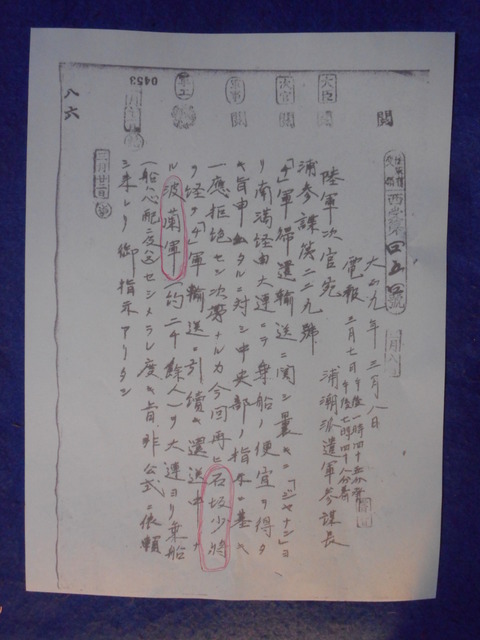 閲
大臣
次官
閲
閲
0453
八六
西受第
大正九年三月八日
電報
三月七日午後一時四十五分發
午後七時四十八分着
浦潮派遣軍參謀長
陸軍次官宛
浦參謀第二二九號
「チ」軍歸還輸送ニ関シ曩ニ「ジヤナン」ヨ
リ南満経由大連ニテ乗船ノ便宜ヲ得タ
キ旨申出タルニ対シ中央部ノ指示ニ基キ
一應拒絶セシ次第ナルカ今回再ヒ石坂少将
ヲ経テ「チ」軍輸送ニ引續キ還送中ナ
ル波蘭軍(約二千餘人)ヲ大連ヨリ乗船
(船ハ心配ニ及ハス)セシメラレ度キ旨非公式ニ依頼
シ来レリ御指示アリタシ
三月廿三日